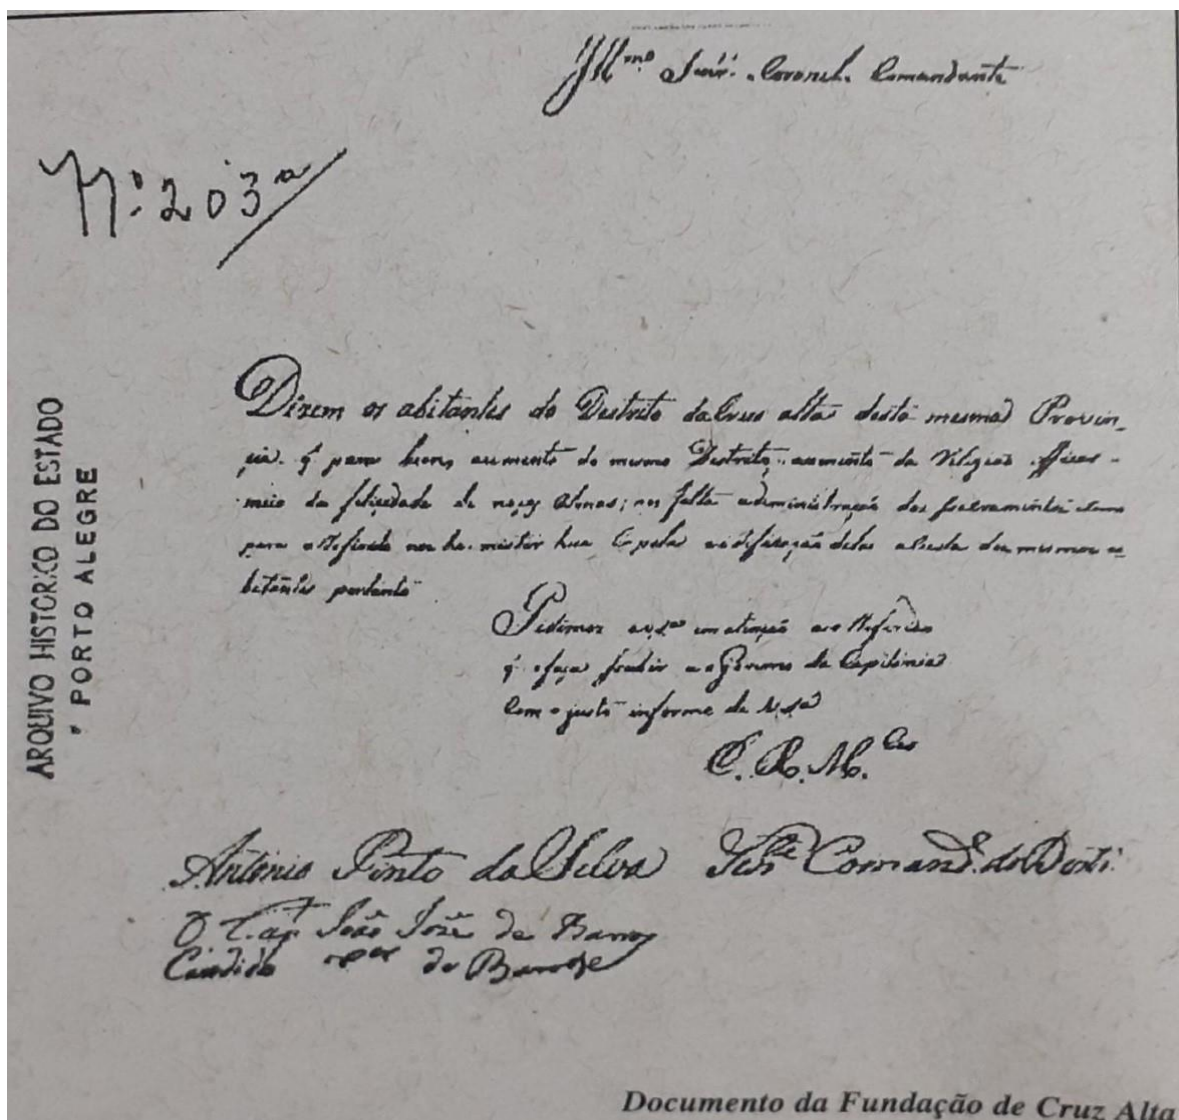 Illmo Snr. Coronel Comandante
Nº 203a
ARQUIVO HISTORICO DO ESTADO
PORTO ALEGRE
Dizem os abitantes do Destrito da Crus alta desta mesma Provin-
cia q para bem, aumento do mesmo Destrito, aumento da Religião
meio da felicidade de noças Almas; nos falta administração dos sacramentos
para o Referido nos he mister hua Capela a custa dos mesmos a-
bitantes portanto
Pedimos atenção ao Referido
q o faça ao Governo da Capitania
Com o justo informe de
E. R. M.ce
Antonio Pinto da Silva Comand. do Dest.
O Cap João José de Barros
Candido de Barros
Documento da Fundação de Cruz Alta